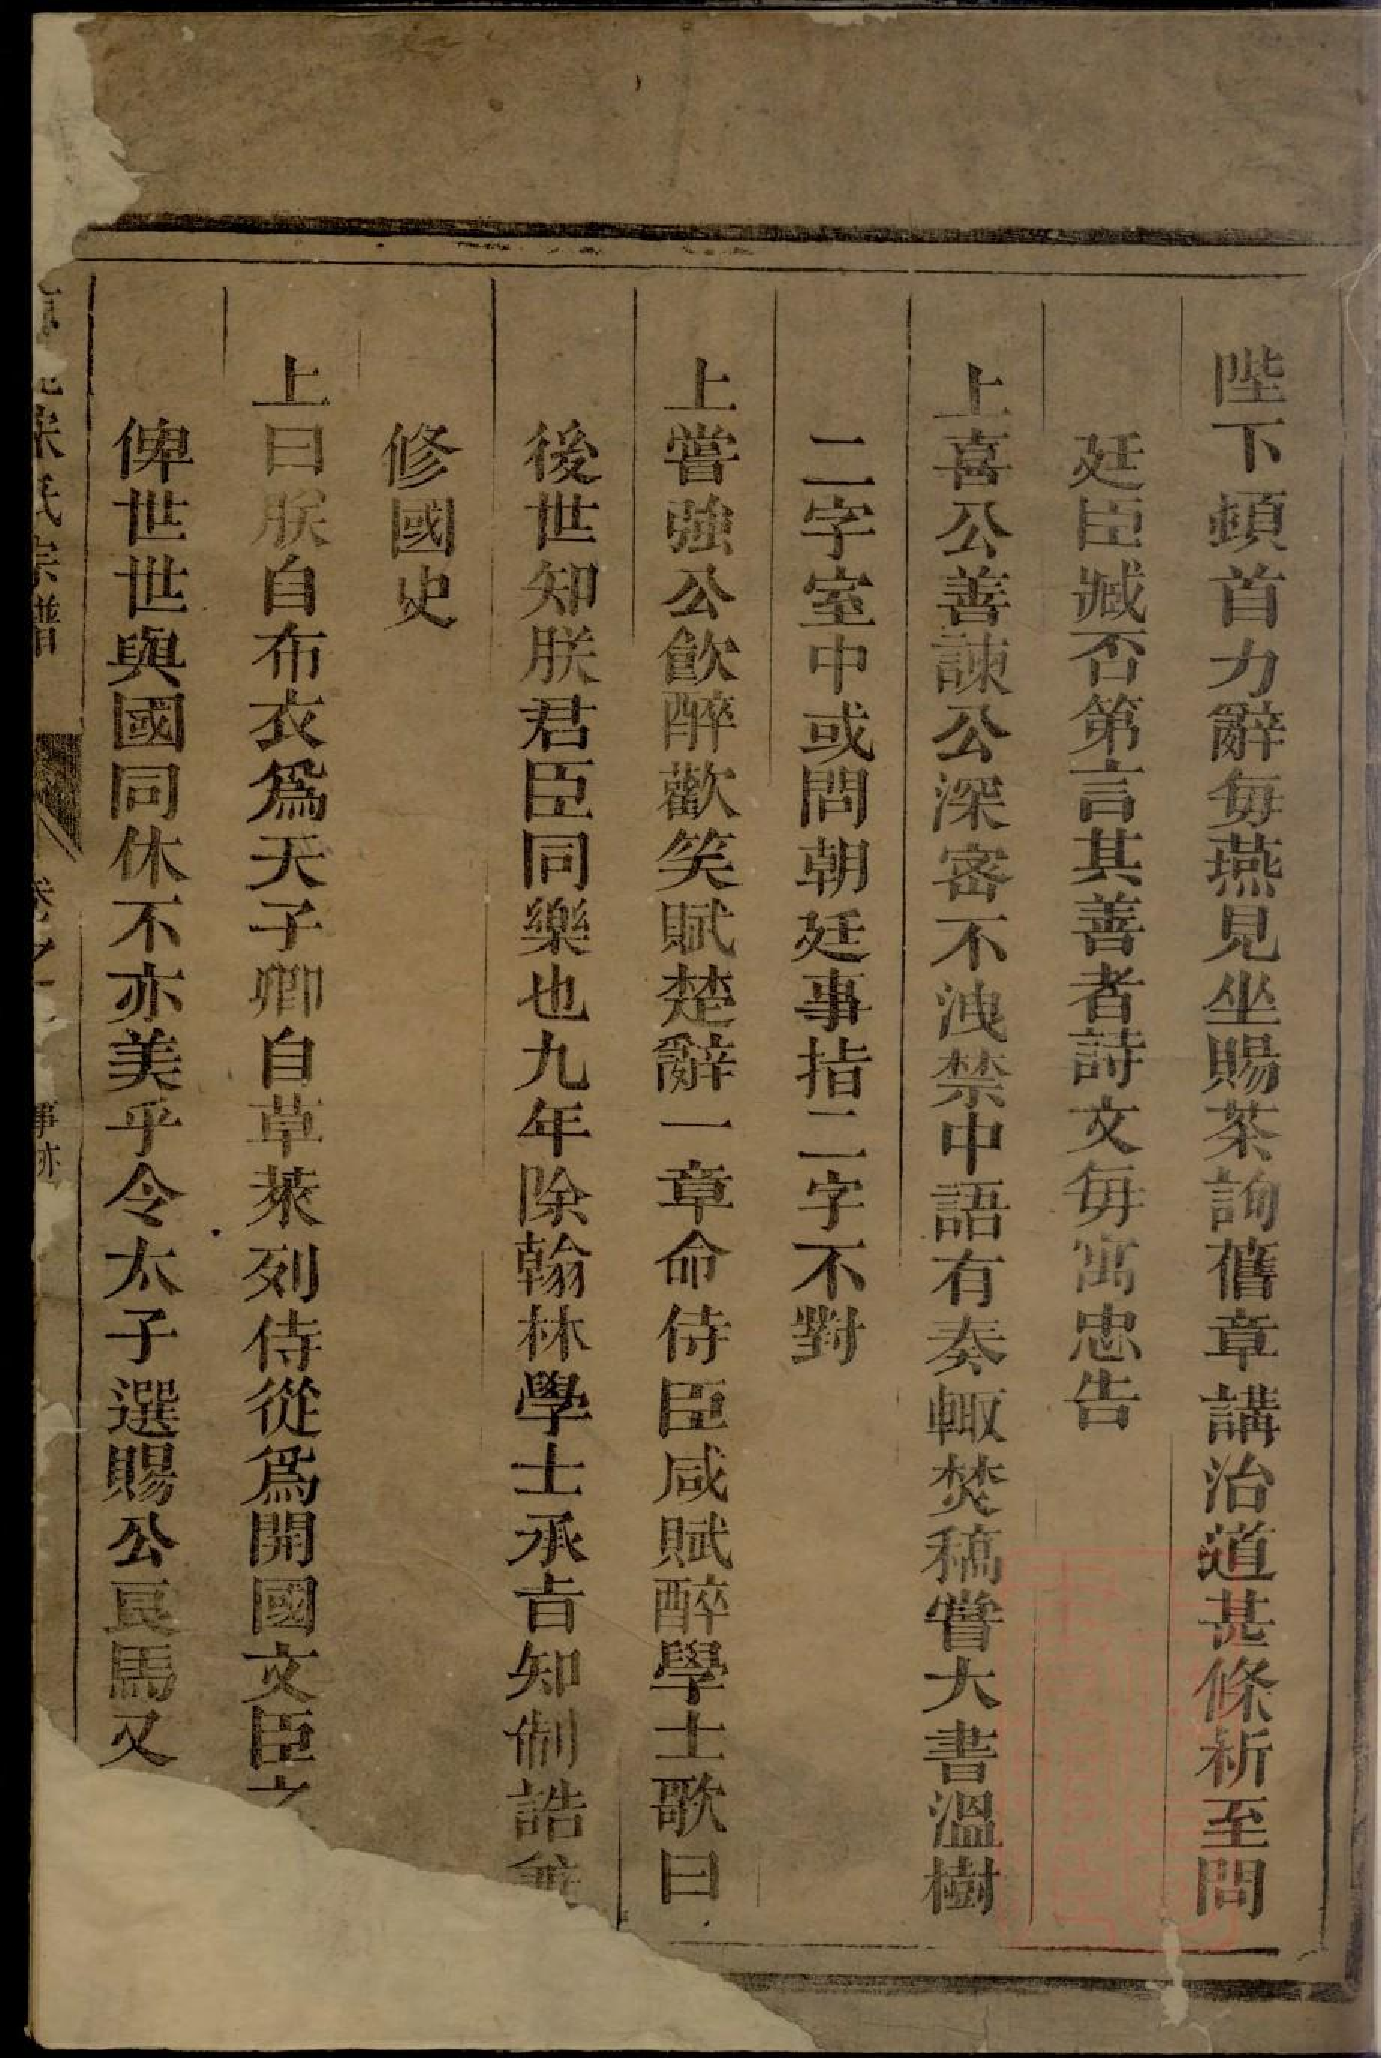 陛下頓首力辭每燕見坐賜茶詢舊章講治道甚條析至問
廷臣臧否第言其善者詩文每寓忠告
上喜公善諫公深密不洩禁中語有奏輙焚稿嘗大書溫樹
二字室中或問朝廷事指二字不對
上嘗強公飲醉歡笑賦楚辭一章命侍臣咸賦醉學士歌曰
後世知朕君臣同樂也九年除翰林學士承旨知制誥兼
修國史
上曰朕自布衣爲天子卿自草萊列侍從爲開國文臣之
俾世世與國同休不亦美乎令太子選賜公良馬又
宋氏宗譜 卷之一 事跡